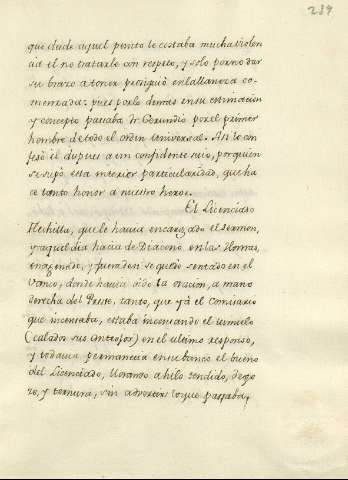 239
que desde aquel punto le costaba mucha violen
cia el no tratarle con respeto, y solo por no dar
su brazo a torcer prosiguió en la llaneza co-
menzada: pues por lo demas en su estimación
y concepto pasaba Fr. Gerundio por el primer
hombre de todo el orden Universal. Asi lo con
fesó él despues a un confidente suio, por quien
se supo esta interior particularidad, que ha
ce tanto honor a nuestro heroe.
El Licenciado
Flechilla, que le havia encargado el sermon,
y aquel dia hacia de Diacono en las Honras,
enagenado, y fuera de si se quedó sentado en el
Vanco, donde havia oido la oración, a mano
derecha del Preste, tanto, que yá el Comisario
que incensaba, estaba incensando el tumulo
(calados sus anteojos) en el ultimo responso,
y todavia permanecia en su banco el bueno
del Licenciado, llorando a hilo tendido, de go
zo, y ternura, sin advertir lo que pasaba,